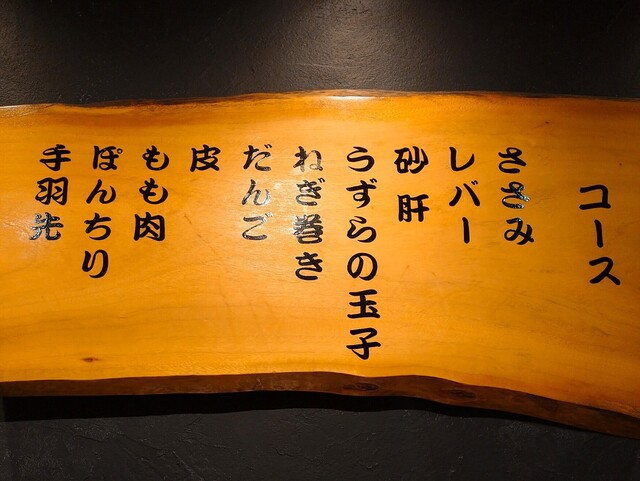 コース
ささみ
レバー
砂肝
うずらの玉子
ねぎ巻き
だんご
皮
もも肉
ぽんちり
手羽先